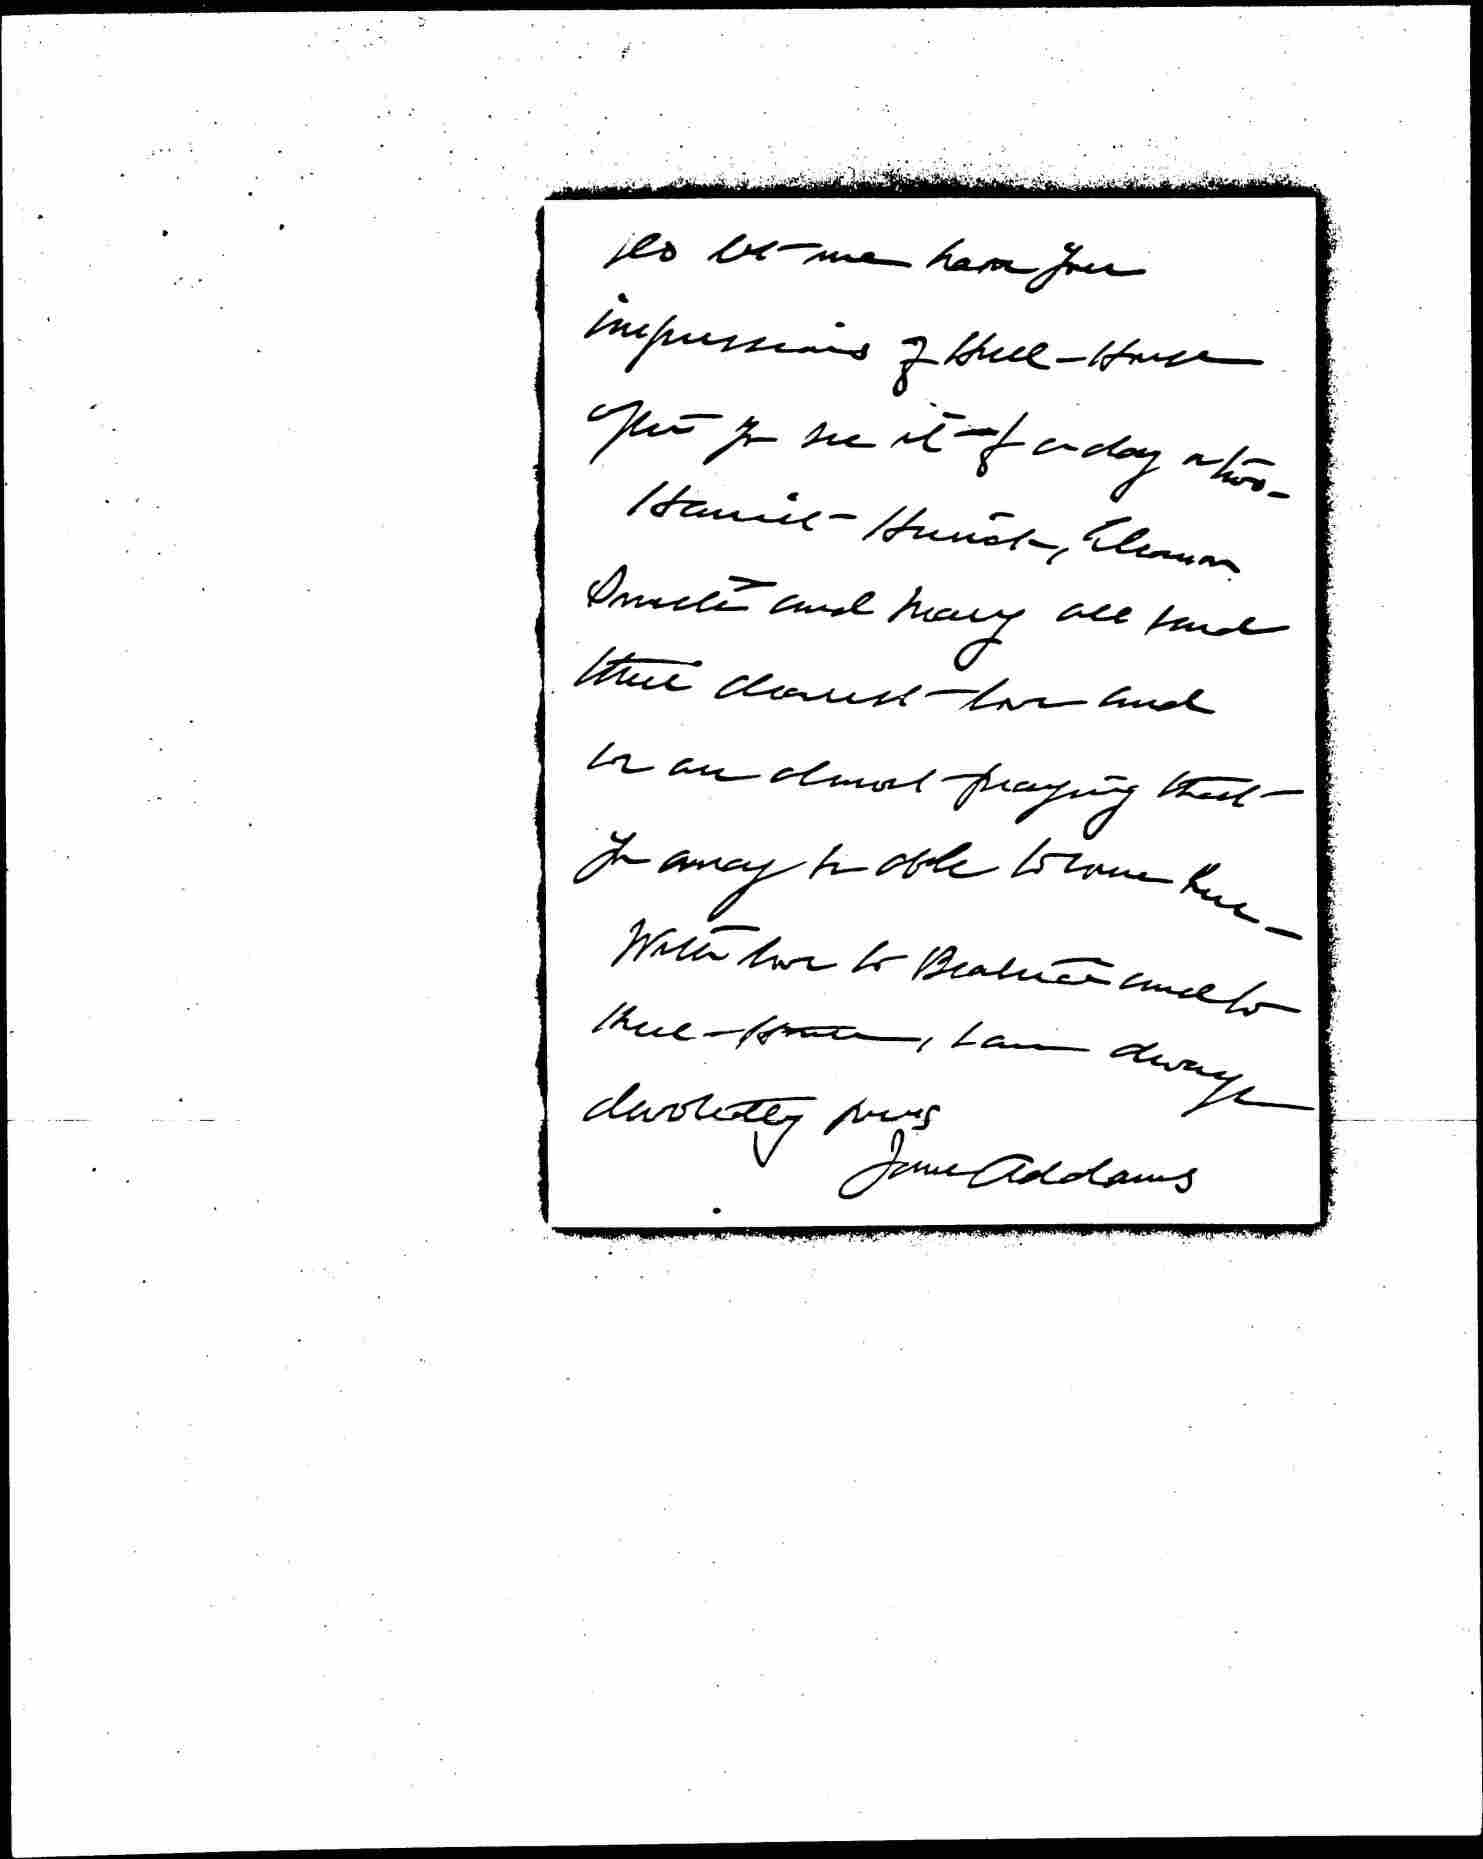 Do let me have your
impressions of Hull-House
after you see it for a day or two -
Harriet, Eleanor
Smith and Mary all send
their dearest love and
we are almost praying that
you may be able to come here -
With love to Beatrice and to
Hull-House, I am always
devotedly yours
Jane Addams